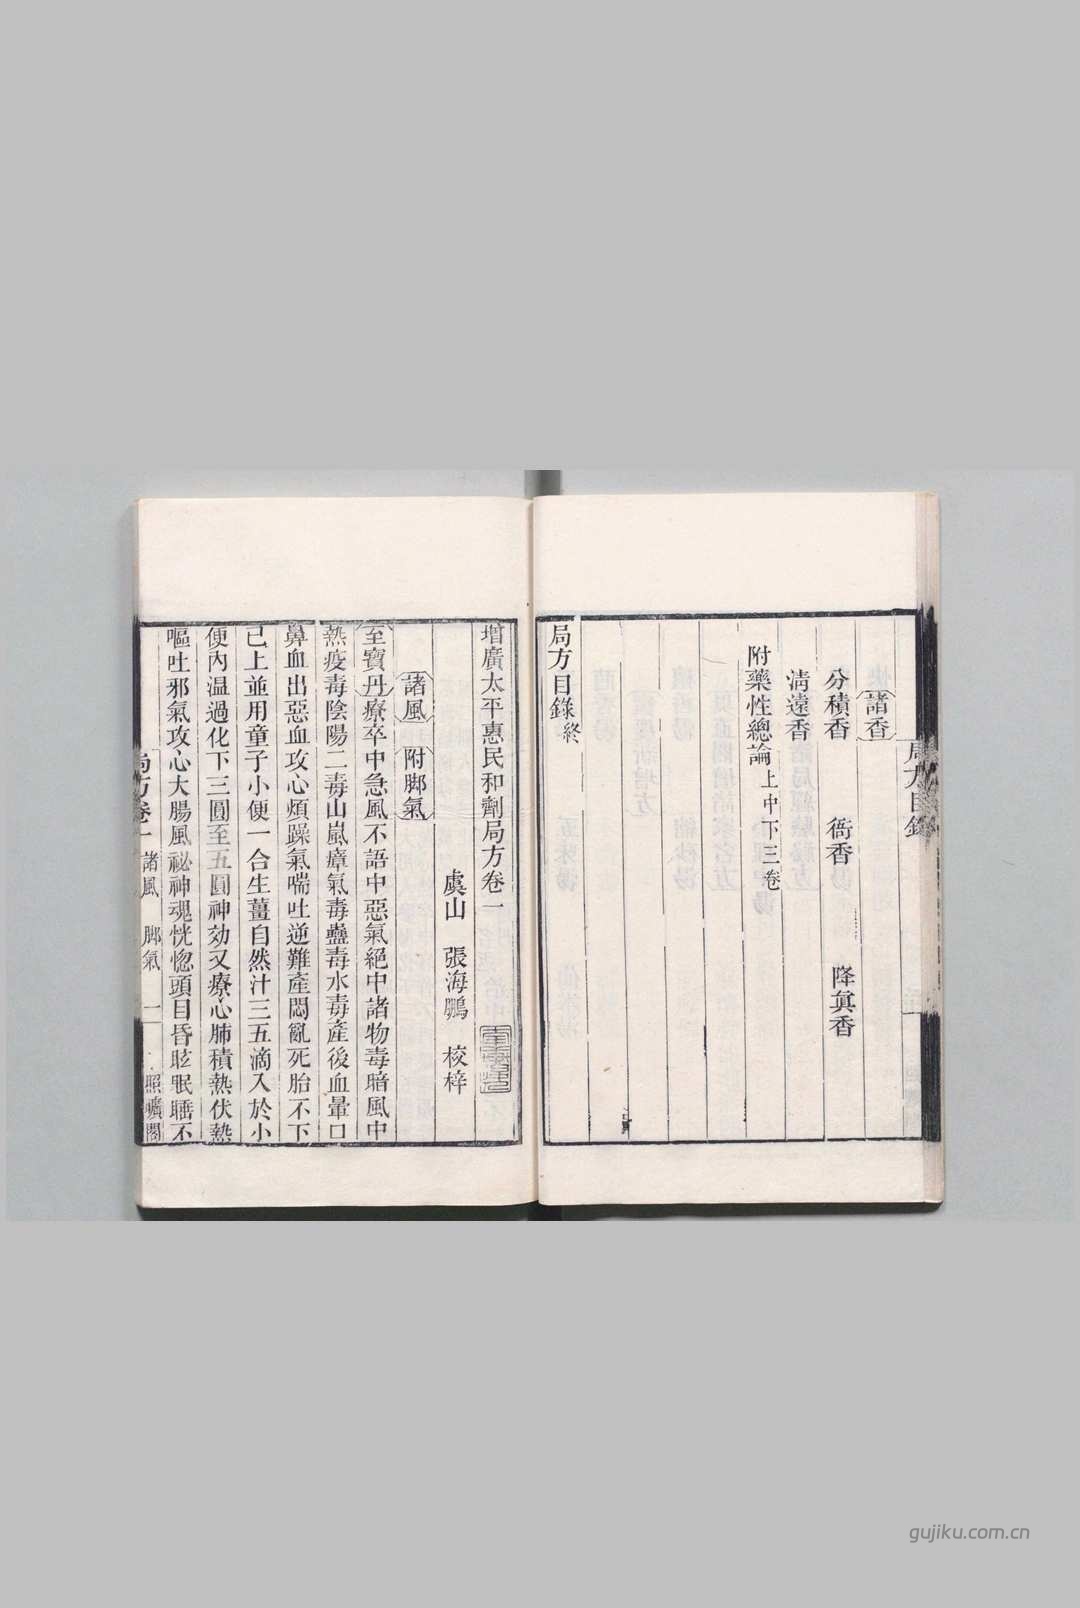 局方目錄
諸香
分積香　衙香　降眞香
淸遠香
附藥性總論上中下三卷
局方目錄終
增廣太平惠民和劑局方卷一
虞山　張海鵬　校梓
諸風　附脚氣
至寶丹療卒中急風不語中惡氣絕中諸物毒暗風中
熱疫毒陰陽二毒山嵐瘴氣毒蠱毒水毒產後血暈口
鼻血出惡血攻心煩躁氣喘吐逆難產悶亂死胎不下
已上並用童子小便一合生薑自然汁三五滴入於小
便內温過化下三圓至五圓神効又療心肺積熱伏熱
嘔吐邪氣攻心大腸風祕神魂恍惚頭目昏眩眠睡不
局方卷一　諸風　脚氣　一　照曠閣
gujiku.com.cn